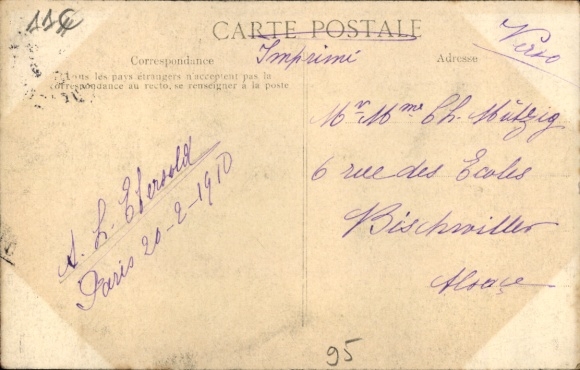 11G
CARTE POSTALE
Imprimé
Verso
Correspondance
Tous les pays étrangers n'acceptent pas la
correspondance au recto, se renseigner à la poste
Adresse
Mr Mme Ch. Mützig
6 rue des Ecoles
Bischwiller
Alsace
A. L. Ebersold
Paris 20-2-1910
95